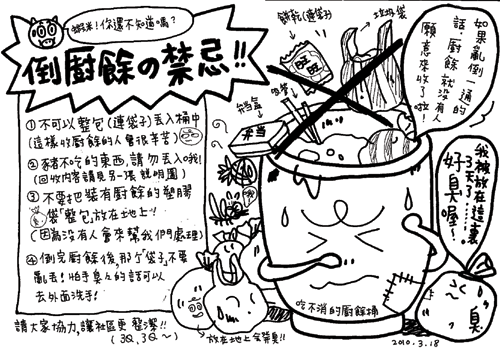 蝦米！你還不知道嗎？
倒廚餘の禁忌!!
①不可以整包(連袋子)丟入桶中
(這樣收廚餘的人會很辛苦)
②豬不吃的東西,請勿丟入哦!
(回收內容請見另一張說明圖)
③不要把裝有廚餘的塑膠
袋"整包"放在地上!!
(因為沒有人會來幫我們處理)
④倒完廚餘後,那个"袋子"不要
亂丟!怕手臭々的話可以
去外面洗手!
請大家協力,讓社區更整潔!!
(3Q,3Q～)
餅乾(連袋子)
垃圾袋
旺旺
便當盒
弁当
如果亂倒一通的
話,廚餘就沒有人
願意來收了啦!
我被放在這裏
3天了......
好臭喔!!
臭
吃不消的廚餘桶
放在地上會發臭!!
2010.3.18